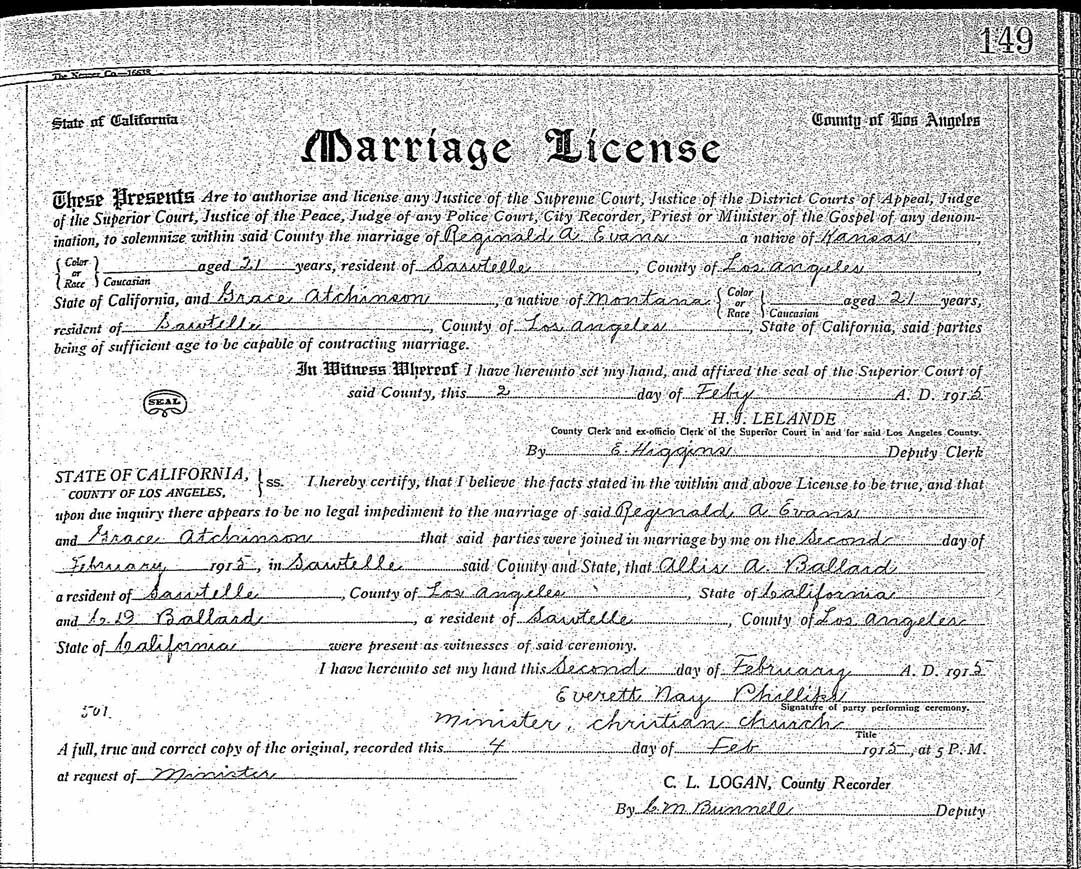 149
The Neuner Co.—16638
State of California
County of Los Angeles
Marriage License
These Presents Are to authorize and license any Justice of the Supreme Court, Justice of the District Courts of Appeal, Judge
of the Superior Court, Justice of the Peace, Judge of any Police Court, City Recorder, Priest or Minister of the Gospel of any denom-
ination, to solemnize within said County the marriage of Reginald A. Evans a native of Kansas,
{Color or Race} Caucasian aged 21 years, resident of Sawtelle, County of Los Angeles,
State of California, and Grace Atchinson, a native of Montana {Color or Race} Caucasian aged 21 years,
resident of Sawtelle, County of Los Angeles, State of California, said parties
being of sufficient age to be capable of contracting marriage.
In Witness Whereof I have hereunto set my hand, and affixed the seal of the Superior Court of
SEAL
said County, this 2 day of Feby A. D. 1915
H. J. LELANDE
County Clerk and ex-officio Clerk of the Superior Court in and for said Los Angeles County.
By E. Higgins Deputy Clerk
STATE OF CALIFORNIA,
COUNTY OF LOS ANGELES, } ss. I hereby certify, that I believe the facts stated in the within and above License to be true, and that
upon due inquiry there appears to be no legal impediment to the marriage of said Reginald A Evans
and Grace Atchinson that said parties were joined in marriage by me on the Second day of
February 1915, in Sawtelle said County and State, that Allis A. Ballard
a resident of Sawtelle, County of Los Angeles, State of California
and Ballard, a resident of Sawtelle, County of Los Angeles
State of California were present as witnesses of said ceremony.
I have hereunto set my hand this Second day of February A. D. 1915
Everett Nay Phillips
Signature of party performing ceremony.
501.
Minister, Christian Church
Title
A full, true and correct copy of the original, recorded this 4 day of Feb 1915, at 5 P. M.
at request of Minister
C. L. LOGAN, County Recorder
By C. M. Bunnell Deputy